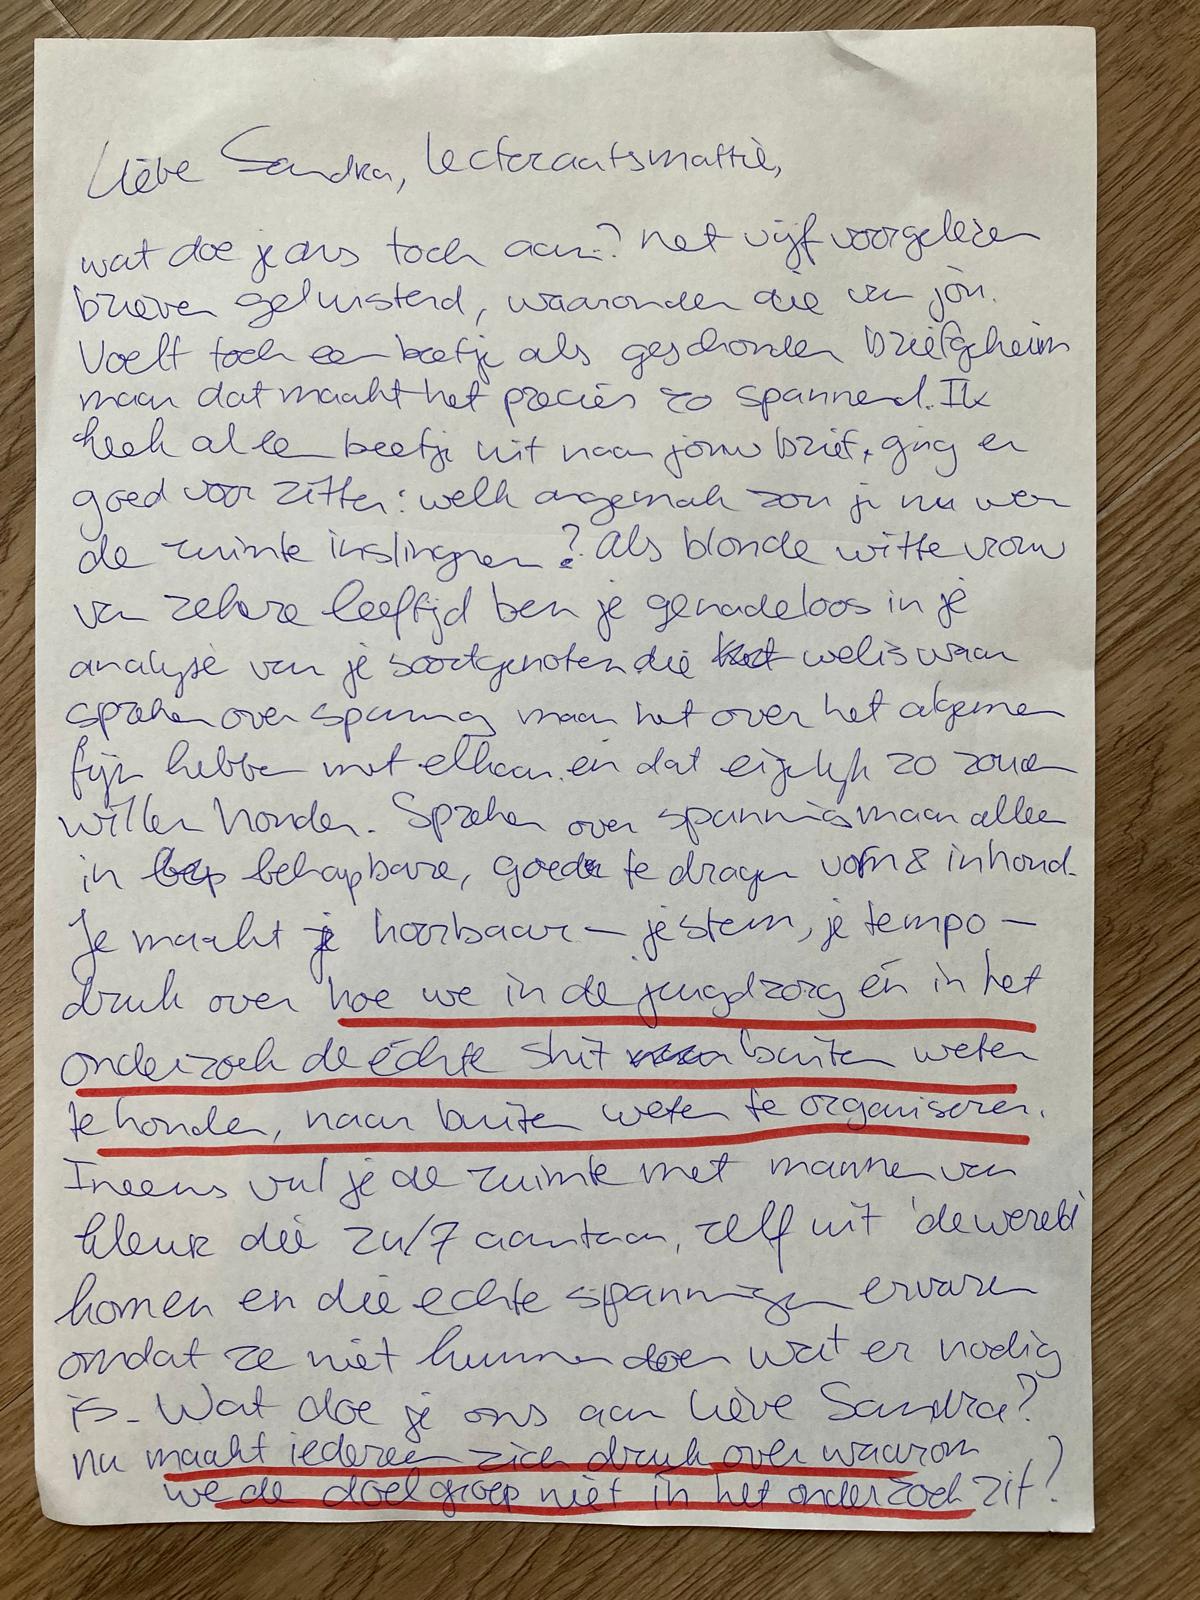 Lieve Sandra, lectoraatsmattie,
wat doe je ons toch aan? net vijf voorgelezen
brieven geluisterd, waaronder die van jou.
Voelt toch een beetje als geschonden briefgeheim
maar dat maakt het precies zo spannend. Ik
keek al een beetje uit naar jouw brief, ging er
goed voor zitten: welk ongemak zou je nu weer
de ruimte inslingeren? Als blonde witte vrouw
van zekere leeftijd ben je genadeloos in je
analyse van je soortgenoten die weliswaar
spreken over spanning maar het over het algemeen
fijn hebben met elkaar en dat eigenlijk zo zouden
willen houden. Spreken over spanning maar alleen
in behapbare, goed te dragen vorm & inhoud.
Je maakt je hoorbaar – je stem, je tempo –
druk over hoe we in de jeugdzorg én in het
onderzoek de échte shit buiten weten
te houden, naar buiten weten te organiseren.
Ineens vul je de ruimte met mannen van
kleur die 24/7 aanstaan, zelf uit 'de wereld'
komen en die echte spanningen ervaren
omdat ze niet kunnen doen wat er nodig
is. Wat doe je ons aan lieve Sandra?
nu maakt iedereen zich druk over waarom
we de doelgroep niet in het onderzoek zit?